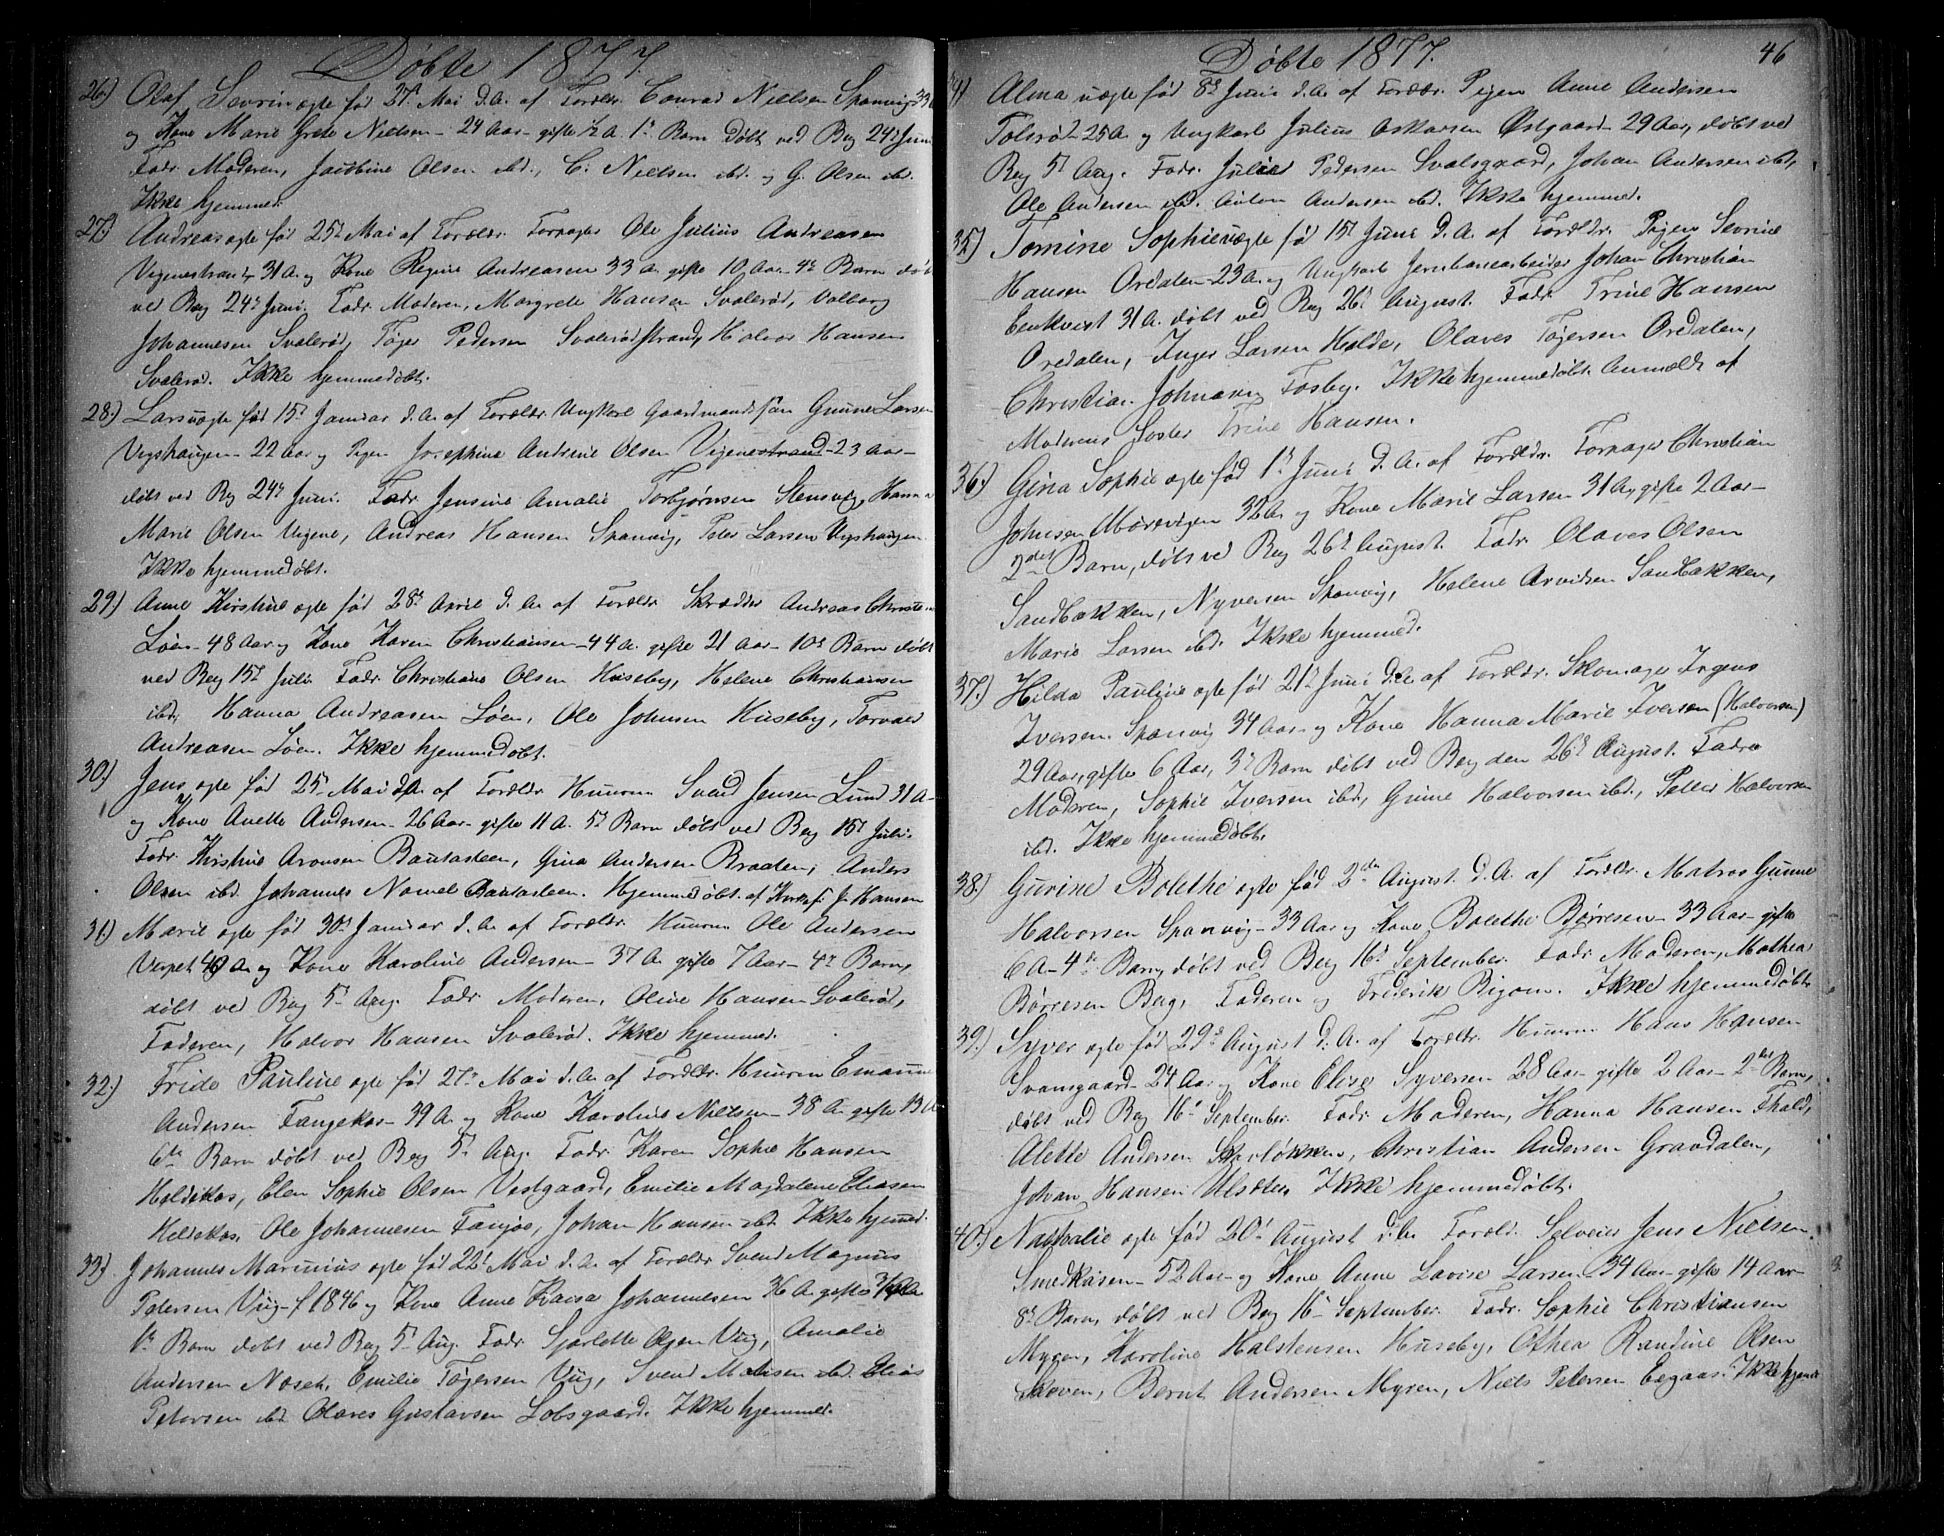 Döbte 1877.
26.) Olaf Sevrin ægte fød 27d Mai d.A. af Foreldr. Conrad Nielsen Spanvig 33
og Kone Marie Grete Nielsen - 24 Aar - gifte ½ A. 1s Barn Døbt ved Beg 24d Juni
Fadr. Moderen, Jacobine Olsen ibd., C. Nielsen ibd. og G. Olsen ibd.
Ikke hjemmed.
27.) Andreas ægte fød 25d Mai af Foreldr. Forpagter Ole Julius Andreasen
Vigenestrand 31 A. og Kone Regine Andreasen 33 A. gifte 10 Aar - 4d Barn døbt
ved Beg 24d Juni. Fadr. Moderen, Margrete Hansen Svalerød, Valborg
Johannesen Svalerød, Tøger Pedersen Svalerødstrand, Halvor Hansen
Svalerød. Ikke hjemmedøbt.
28.) Lars uægte fød 15d Januar d.A. af Foreldr. Ungkarl Gaardmandssøn Gunner Larsen
Vegshaugen - 22 Aar og Pigen Josephine Andrine Olsen Vigenestrand - 23 Aar -
døbt ved Beg 24d Juni. Fadr. Jensine Amalie Torbjørnsen Stensvig, Hanna
Marie Olsen Vigene, Andreas Hansen Spanvig, Peter Larsen Vegshaugen
Ikke hjemmedøbt.
29.) Anne Kirstine ægte fød 28d April d.A. af Foreldr. Skrædder Andreas Christ
Løen - 48 Aar og Kone Karen Christiansen - 44 A. gifte 21 Aar - 10d Barn døbt
ved Beg 15d Juli. Fadr. Christiane Olsen Huseby, Helene Christiansen
ibd. Hanna Andreasen Løen, Ole Johnsen Huseby, Torvald
Andreasen Løen. Ikke hjemmedøbt.
30.) Jens ægte fød 25d Mai d.A. af Foreldr. Huusm. Svend Jensen Lund 31 A -
og Kone Anette Andersen - 26 Aar - gifte 11 A. 5d Barn døbt ved Beg 15d Juli.
Fadr. Kirstine Aronsen Bautasteen, Gina Andersen Braaten, Anders
Olsen ibd. Johannes Bautasteen. Hjemmedøbt af J. Hansen
31.) Marie ægte fød 30d Januar d.A. af Foreldr. Huusm. Ole Andersen
Verpet 40 A. og Kone Karoline Andersen - 37 A. gifte 7 Aar - 4d Barn,
døbt ved Beg 5d Aug. Fadr. Moderen, Oline Hansen Svalerød,
Faderen, Halvor Hansen Svalerød. Ikke hjemmed.
32.) Fride Pauline ægte fød 27d Mai d.A. af Foreldr. Huusm. Emanuel
Andersen Tangekas - 39 A. og Kone Karoline Nielsen - 38 A. gifte 13 A
6te Barn døbt ved Beg 5d Aug. Fadr. Karen Sophie Hansen
Holdekas, Elen Sophie Olsen Vestgaard, Emilie Magdalene Eliasen
Holdekas, Ole Johannesen Johan Hansen ibd. Ikke hjemmed.
33.) Johannes Marinius ægte fød 22d Mai d.A. af Foreldr. Svend Magnus
Petersen Vug - f 1846 og Kone Anne Kaisa Johannesen 36 A. gifte
Barn døbt ved Beg 5d Aug. Fadr. Sjarlotte Olsen Vug, Amalie
Andersen Næset, Emilie Tøgersen Vug, Svend Madsen ibd. Elias
Petersen ibd. Olaves Gustavsen Lobsgaard. Ikke hjemmed.
Døbte 1877. 46
34) Alma uægte fød 8d Juni d.A. af Foreldr. Pigen Anne Andersen
Tolsrød - 25 A. og Ungkarl Julius Oskarsen Østgaard - 29 Aar, døbt ved
Beg 5d Aug. Fadr. Julie Pedersen Svalsgaard, Johan Andersen ibd,
Ole Andersen ibd. Anton Andersen ibd. Ikke hjemmed.
35.) Tomine Sophie uægte fød 15d Juni d.A. af Foreldr. Pigen Sevrine
Hansen Oredalen - 23 A. og Ungkarl Jernbanearbeider Johan Christian
Eenkvist 31 A. døbt ved Beg 26d August. Fadr. Trine Hansen
Oredalen, Inger Larsen Holde, Olaves Tøgersen Oredalen,
Christian Johnsen Fosby. Ikke hjemmedøbt. Anmeldt af
Moderens Søster Trine Hansen.
36.) Gina Sophie ægte fød 1d Juni d.A. af Foreldr. Forpagter Christian
Johnsen Mørevigen 32 A. og Kone Marie Larsen 31 A. gifte 2 Aar -
2det Barn, døbt ved Beg 26d August. Fadr. Olaves Olsen
Sandbækken, Nyversen Spanvig, Helene Arvidsen Sandbækken,
Marie Larsen ibd. Ikke hjemmed.
37.) Hilda Pauline ægte fød 21d Juni d.A. af Foreldr. Skomager Ingens
Iversen Spanvig 34 Aar og Kone Hanna Marie Iversen (Halvorsen)
29 Aar, gifte 6 Aar, 3d Barn døbt ved Beg den 26d August. Fadre
Moderen, Sophie Iversen ibd, Grine Halvorsen ibd., Petter Halvorsen
ibd. Ikke hjemmedøbt.
38.) Gurine Bolethe ægte fød 2den August d.A. af Foreldr. Matros Gunne
Halvorsen Spanvig - 33 Aar og Kone Bolethe Børresen - 33 Aar - gifte
6 A - 4de Barn, døbt ved Beg 16d September. Fadr. Moderen, Mathea
Børresen Beg, Faderen og Frederik Ikke hjemmedøbt
39.) Syver ægte fød 29d August d.A. af Foreldr. Huusm. Hans Hansen
Svansgaard - 24 Aar og Kone Elise Syversen 28 Aar - gifte 2 Aar - 2det Barn,
døbt ved Beg 16d September. Fadr. Moderen, Hanna Hansen
Alette Andersen Storløkken, Christian Andersen Gravdalen,
Johan Hansen Ulsæter. Ikke hjemmedøbt.
40.) Nathalie ægte fød 20d August d.A. Foreld. Selveier Jens Nielsen
Smedkasen - 52 Aar - og Kone Anne Lovise Larsen - 34 Aar - gifte 14 Aar -
8d Barn, døbt ved Beg 16d September. Fadr. Sophie Christiansen
Myren, Karoline Halstensen Huseby, Othea Randine Olsen
Skoven, Bernt Andersen Myren, Niels Petersen Ikke hjemmed